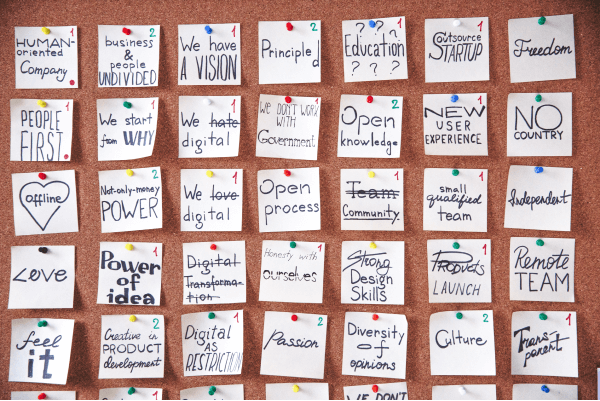 HUMAN-
oriented
Company
1
business
&
people
UNDIVIDED
2
We have
A VISION
1
Principled
2
? ? ?
Education
? ? ?
1
Outsource
STARTUP
1
Freedom
PEOPLE
FIRST
1
We start
from WHY
2
We hate
digital
1
WE DON'T WORK
WITH
Government
1
Open
knowledge
2
NEW
USER
EXPERIENCE
1
NO
COUNTRY
offline
Not-only-money
POWER
2
We love
digital
1
Open
process
1
Team
Community
1
small
qualified
team
1
Independent
Love
Power
of
idea
1
Digital
Transforma-
tion
1
Honesty with
ourselves
1
Strong
Design
Skills
Products
LAUNCH
1
Remote
TEAM
feel
it
Creative in
PRODUCT
development
2
Digital
AS
RESTRICTION
1
Passion
2
Diversity
of
opinions
1
Culture
2
Trans-
parent
1
1
2
1
WE DON'T